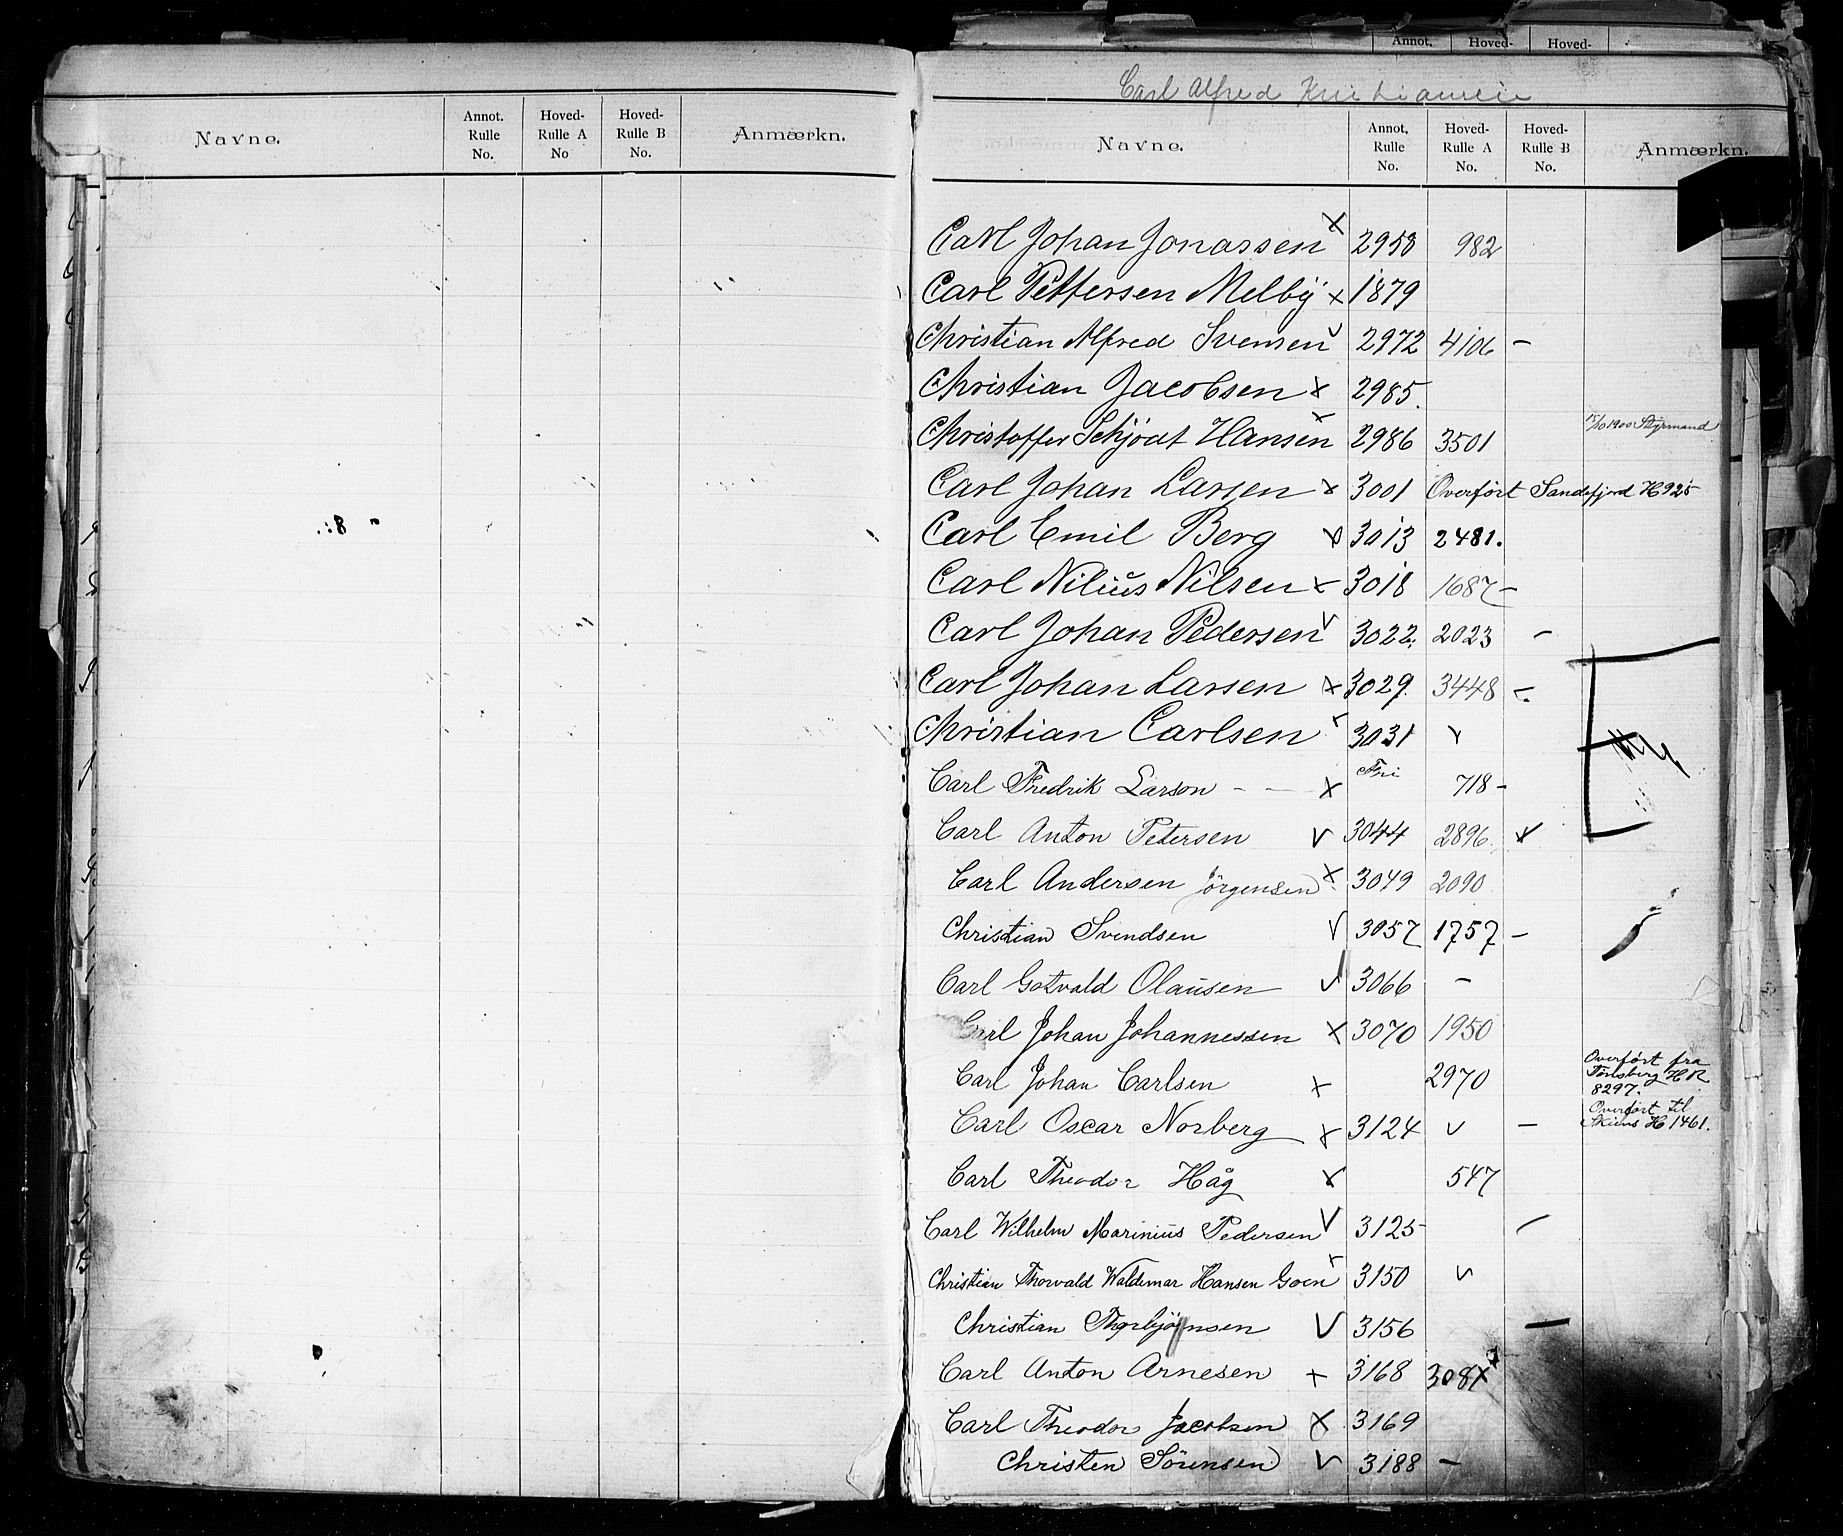 Annot. Hoved- Hoved-
Carl Alfred
Navne. Annot. Rulle No. Hoved-Rulle A No Hoved-Rulle B No. Anmærkn.
Navne. Annot. Rulle No. Hoved-Rulle A No. Hoved-Rulle B No. Anmærkn.
Carl Johan Jonassen x 2958 982
Carl Pettersen Melby x 1879
Christian Alfred Svensen v 2972 4106 -
Christian Jacobsen x 2985.
Christoffer Schjödt Hansen x 2986 3501 15/10 1900 Styrmand
Carl Johan Larsen x 3001 Overført Sandefjord H 925
Carl Emil Berg x 3013 2481.
Carl Nilius Nilsen x 3018 1687 -
Carl Johan Pedersen v 3022. 2023 -
Carl Johan Larsen x 3029. 3448 -
Christian Carlsen 3031 v
Carl Fredrik Larson - - x Fri 718 -
Carl Anton Petersen v 3044 2896. x
Carl Andersen Jörgensen x 3049 2090
Christian Svendsen v 3057 1757 -
Carl Gotvald Olausen v 3066 -
Carl Johan Johannessen x 3070 1950
Carl Johan Carlsen x 2970 Overført fra
Tønsberg H R
8297.
Carl Oscar Norberg x 3124 v - Overført til
Skiens H 1461.
Carl Theodor Håg x 547
Carl Wilhelm Marinius Pedersen v 3125 -
Christian Thorvald Waldemar Hansen Goen 3150 v
Christian Thorbjörnsen v 3156 -
Carl Anton Arnesen + 3168
Carl Theodor Jacobsen x 3169
Christen Sörensen v 3188 -